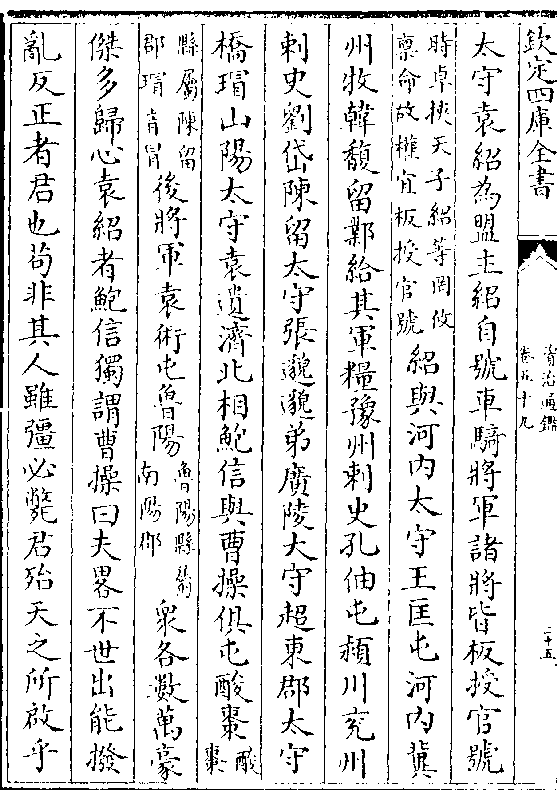 欽定四庫全書
資治通鑑
卷五十九
二十五
太守袁紹為盟主紹自號車騎將軍諸將皆板授官號
時卓挾天子紹等罔攸
稟命故權宜板授官號
紹與河内太守王匡屯河内冀
州牧韓馥留鄴給其軍糧豫州刺史孔伷屯潁川兖州
刺史劉岱陳留太守張邈邈弟廣陵太守超東郡太守
橋瑁山陽太守袁遺濟北相鮑信與曹操俱屯酸棗
酸
棗
縣屬陳留
郡瑁音冒
後將軍袁術屯魯陽
魯陽縣屬
南陽郡
衆各數萬豪
傑多歸心袁紹者鮑信獨謂曹操曰夫畧不世出能撥
亂反正者君也苟非其人雖彊必斃君殆天之所啟乎